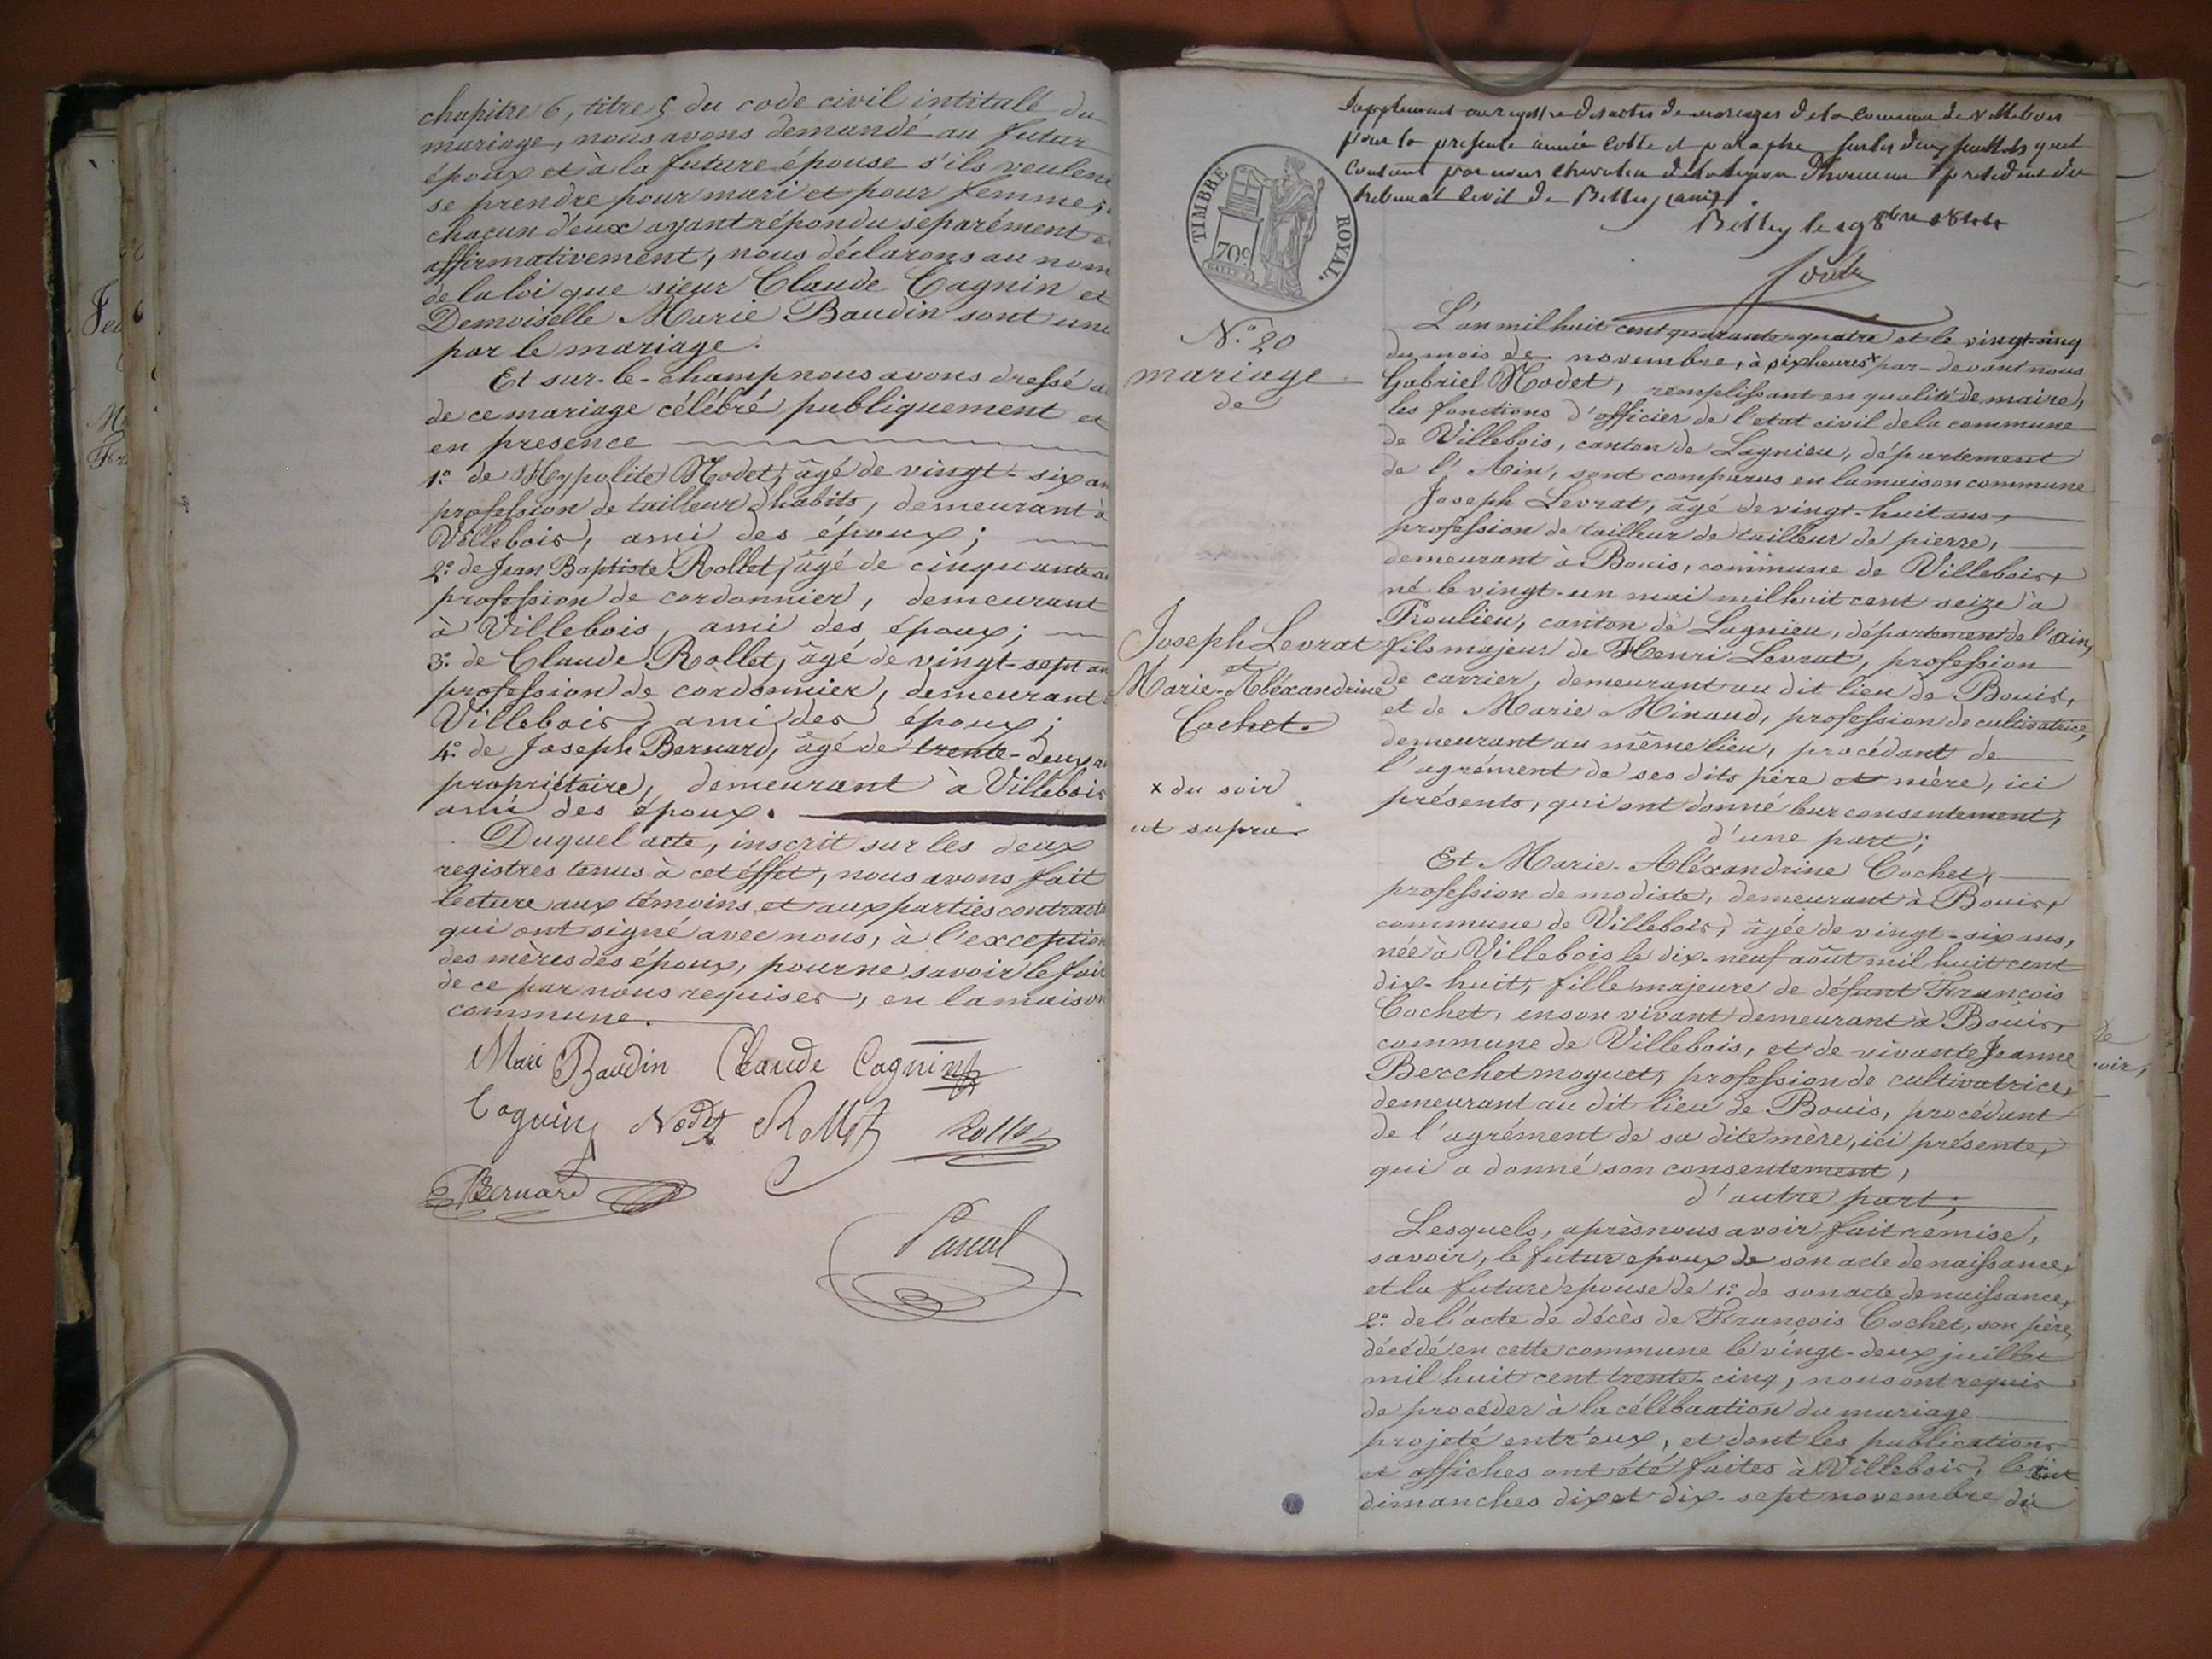 chapitre 6, titre 5 du code civil intitulé du
mariage, nous avons demandé au futur
époux et à la future épouse s'ils veulent
se prendre pour mari et pour femme;
chacun d'eux ayant répondu separément e
affirmativement, nous déclarons au nom
de la loi que sieur Claude Cagnin et
Demoiselle Marie Baudin sont uni
par le mariage.
Et sur-le-champ nous avons dressé a
de ce mariage célébré publiquement et
en presence
1.° de Hypolite Nodet, âgé de vingt-six an
profession de tailleur d'habits, demeurant à
Villebois, ami des époux;
2.° de Jean Baptiste Rollet, âgé de cinquante a
profession de cordonnier, demeurant
à Villebois, ami des époux;
3.° de Claude Rollet, âgé de vingt-sept an
profession de cordonnier, demeurant
Villebois, ami des époux;
4.° de Joseph Bernard, âgé de trente-deux a
propriétaire, demeurant à Villebois
ami des époux.
Duquel acte, inscrit sur les deux
registres tenus à cet éffet, nous avons fait
lecture aux témoins et aux parties contracta
qui ont signé avec nous, à l'exception
des mères des époux, pour ne savoir le fair
de ce par nous requises, en la maison
commune.
Mari Baudin Claude Cagnin
Cagnin Nodet Rollet Rolle
Bernard
Pascal
Supplement au registre des actes de mariages de la Commune de Villebois
pour la presente année Cotté et paraphé sur les deux feuillets quil
Contient par nous Chevalier de la legion d'honneur president du
tribunal Civil de Belley (ain)
Belley le 19 8bre 1844
TIMBRE ROYAL.
70c
N.° 20
mariage
de
Joseph Levrat
et
Marie-Aléxandrine
Cochet.
x du soir
ut supra
L'an mil huit cent quarante quatre et le vingt-cinq
du mois de novembre, à six heures x par-devant nous
Gabriel Nodet, remplissant en qualité de maire,
les fonctions d'officier de l'état civil de la commune
de Villebois, canton de Lagnieu, département
de l'Ain, sont comparus en la maison commune
Joseph Levrat, âgé de vingt-huit ans,
profession de tailleur de tailleur de pierre,
demeurant à Bouis, commune de Villebois,
né le vingt-un mai mil huit cent seize à
Proulieu, canton de Lagnieu, département de l'ain,
fils majeur de Henri Levrat, profession
de carrier, demeurant au dit lieu de Bouis,
et de Marie Minaud, profession de cultivatrice,
demeurant au même lieu, procédant de
l'agrément de ses dits père et mère, ici
présents, qui ont donné leur consentement,
d'une part;
Et Marie-Aléxandrine Cochet,
profession de modiste, demeurant à Bouis,
commune de Villebois, âgée de vingt-six ans,
née à Villebois le dix-neuf août mil huit cent
dix-huit, fille majeure de défunt François
Cochet, en son vivant demeurant à Bouis,
commune de Villebois, et de vivante Jeanne
Berchetmoguet, profession de cultivatrice,
demeurant au dit lieu de Bouis, procédant
de l'agrément de sa dite mère, ici présente,
qui a donné son consentement,
d'autre part;
Lesquels, après nous avoir fait remise,
savoir, le futur epoux de son acte de naissance,
et la future epouse de 1.° de son acte de naissance,
2.° de l'acte de décès de François Cochet, son père,
décédé en cette commune le vingt-deux juillet
mil huit cent trente-cinq, nous ont requis
de procéder à la célébration du mariage
projeté entr'eux, et dont les publications
et affiches ont été faites à Villebois, les
dimanches dix et dix-sept novembre du